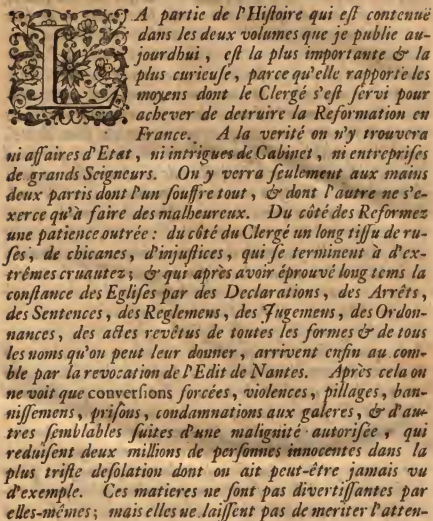 LA partie de l'Hiſtoire qui eſt contenuë
dans les deux volumes que je publie au-
jourdhui, eſt la plus importante & la
plus curieuſe, parce qu'elle rapporte les
moyens dont le Clergé s'eſt ſervi pour
achever de detruire la Reformation en
France. A la verité on n'y trouvera
ni affaires d'Etat, ni intrigues de Cabinet, ni entrepriſes
de grands Seigneurs. On y verra ſeulement aux mains
deux partis dont l'un ſouffre tout, & dont l'autre ne s'e-
xerce qu'à faire des malheureux. Du côté des Reformez
une patience outrée: du côté du Clergé un long tiſſu de ru-
ſes, de chicanes, d'injuſtices, qui ſe terminent à d'ex-
trêmes cruautez; & qui après avoir éprouvé long tems la
conſtance des Egliſes par des Declarations, des Arrêts,
des Sentences, des Reglemens, des Jugemens, des Ordon-
nances, des actes revêtus de toutes les formes & de tous
les noms qu'on peut leur donner, arrivent enfin au com-
ble par la revocation de l'Edit de Nantes. Après cela on
ne voit que converſions forcées, violences, pillages, ban-
niſſemens, priſons, condamnations aux galeres, & d'au-
tres ſemblables ſuites d'une malignité autoriſée, qui
reduiſent deux millions de perſonnes innocentes dans la
plus triſte deſolation dont on ait peut-être jamais vu
d'exemple. Ces matieres ne ſont pas divertiſſantes par
elles-mêmes; mais elles ne laiſſent pas de meriter l'atten-